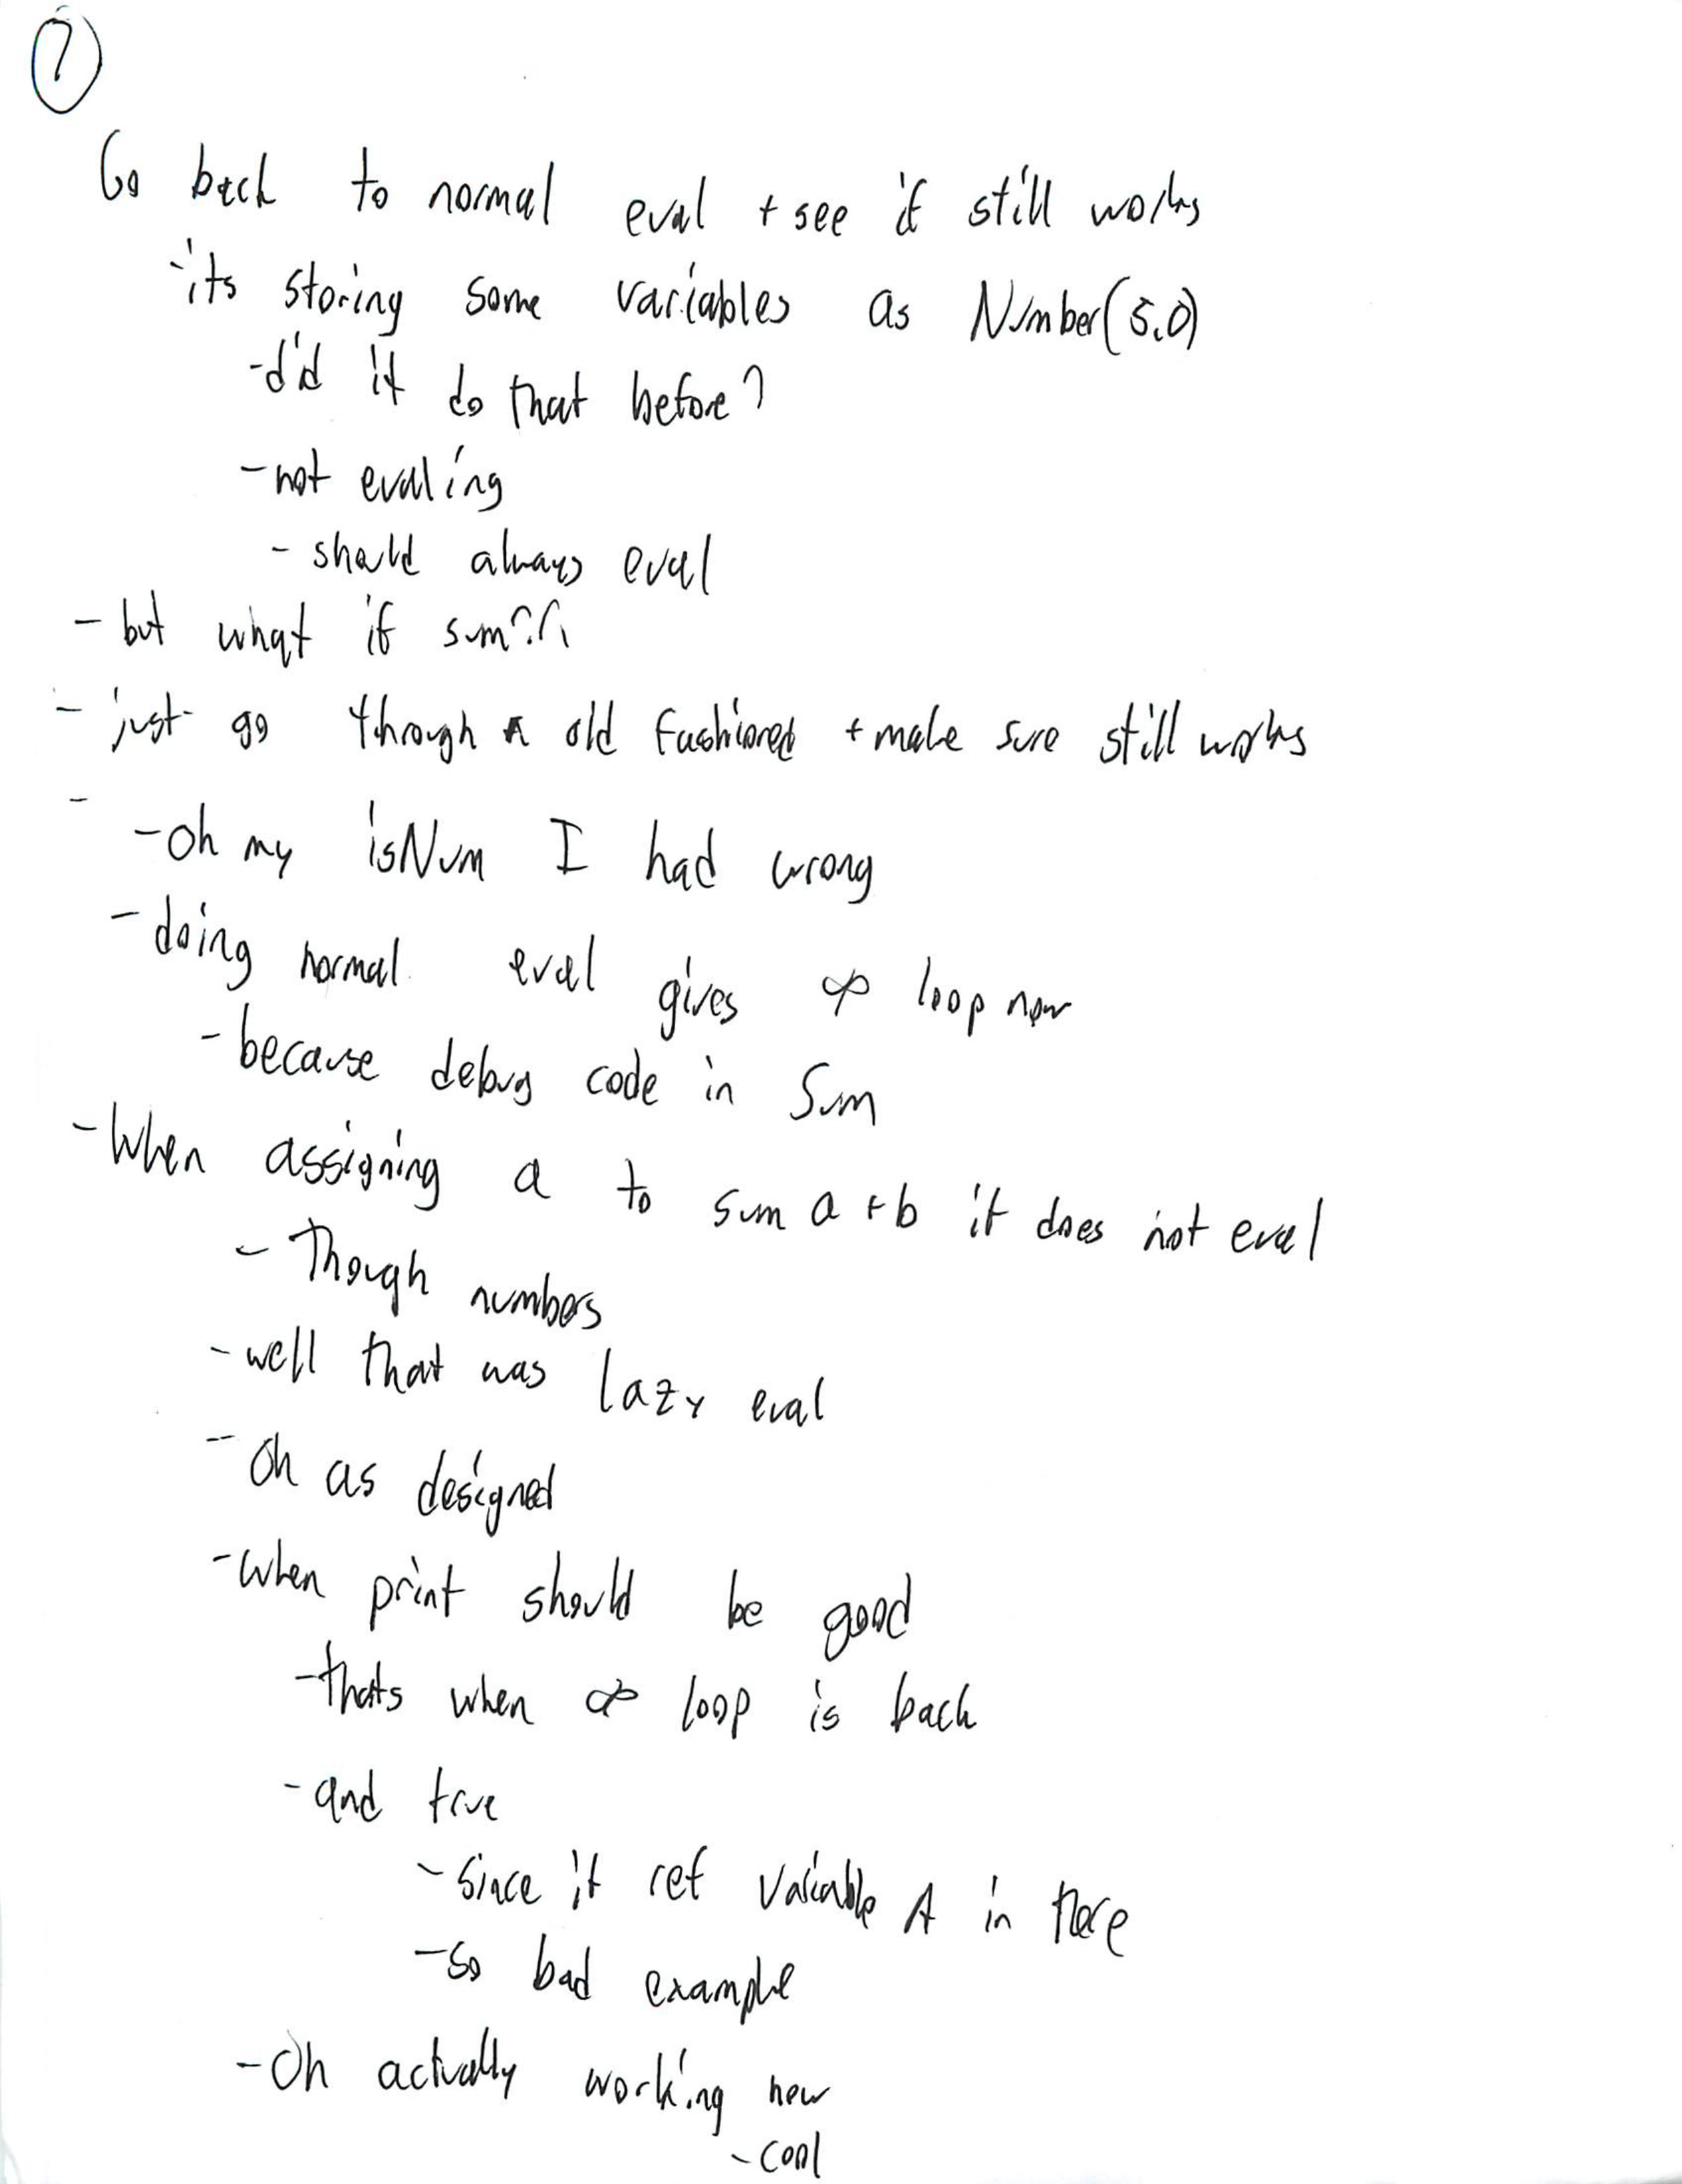 7
Go back to normal eval + see if still works
- its storing some variables as Number(5.0)
- did it do that before?
- not evaling
- should always eval
- but what if sum
- just go through old fashioned + make sure still works
-
- oh my isNum I had wrong
- doing normal eval gives ∞ loop now
- because debug code in Sum
- When assigning a to sum a + b it does not eval
- Though numbers
- well that was lazy eval
- Oh as designed
- when print should be good
- thats when ∞ loop is back
- and true
- Since it ref variable A in there
- So bad example
- Oh actually working now
- cool